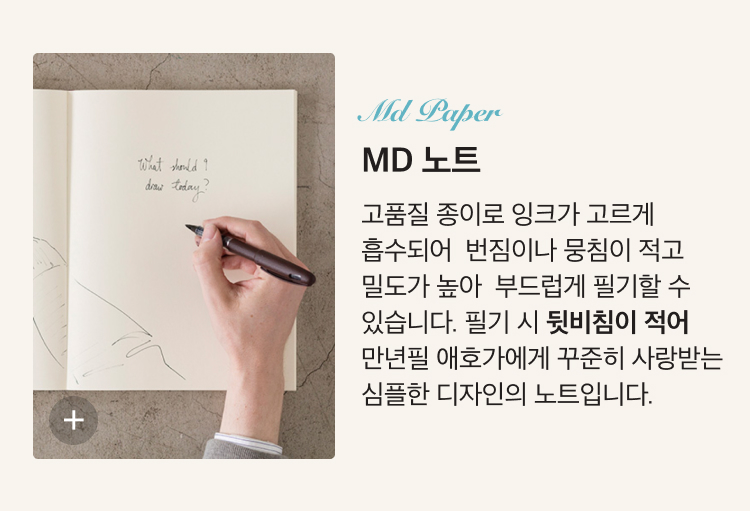 Md Paper
MD 노트
What should I
draw today?
고품질 종이로 잉크가 고르게
흡수되어 번짐이나 뭉침이 적고
밀도가 높아 부드럽게 필기할 수
있습니다. 필기 시 뒷비침이 적어
만년필 애호가에게 꾸준히 사랑받는
심플한 디자인의 노트입니다.